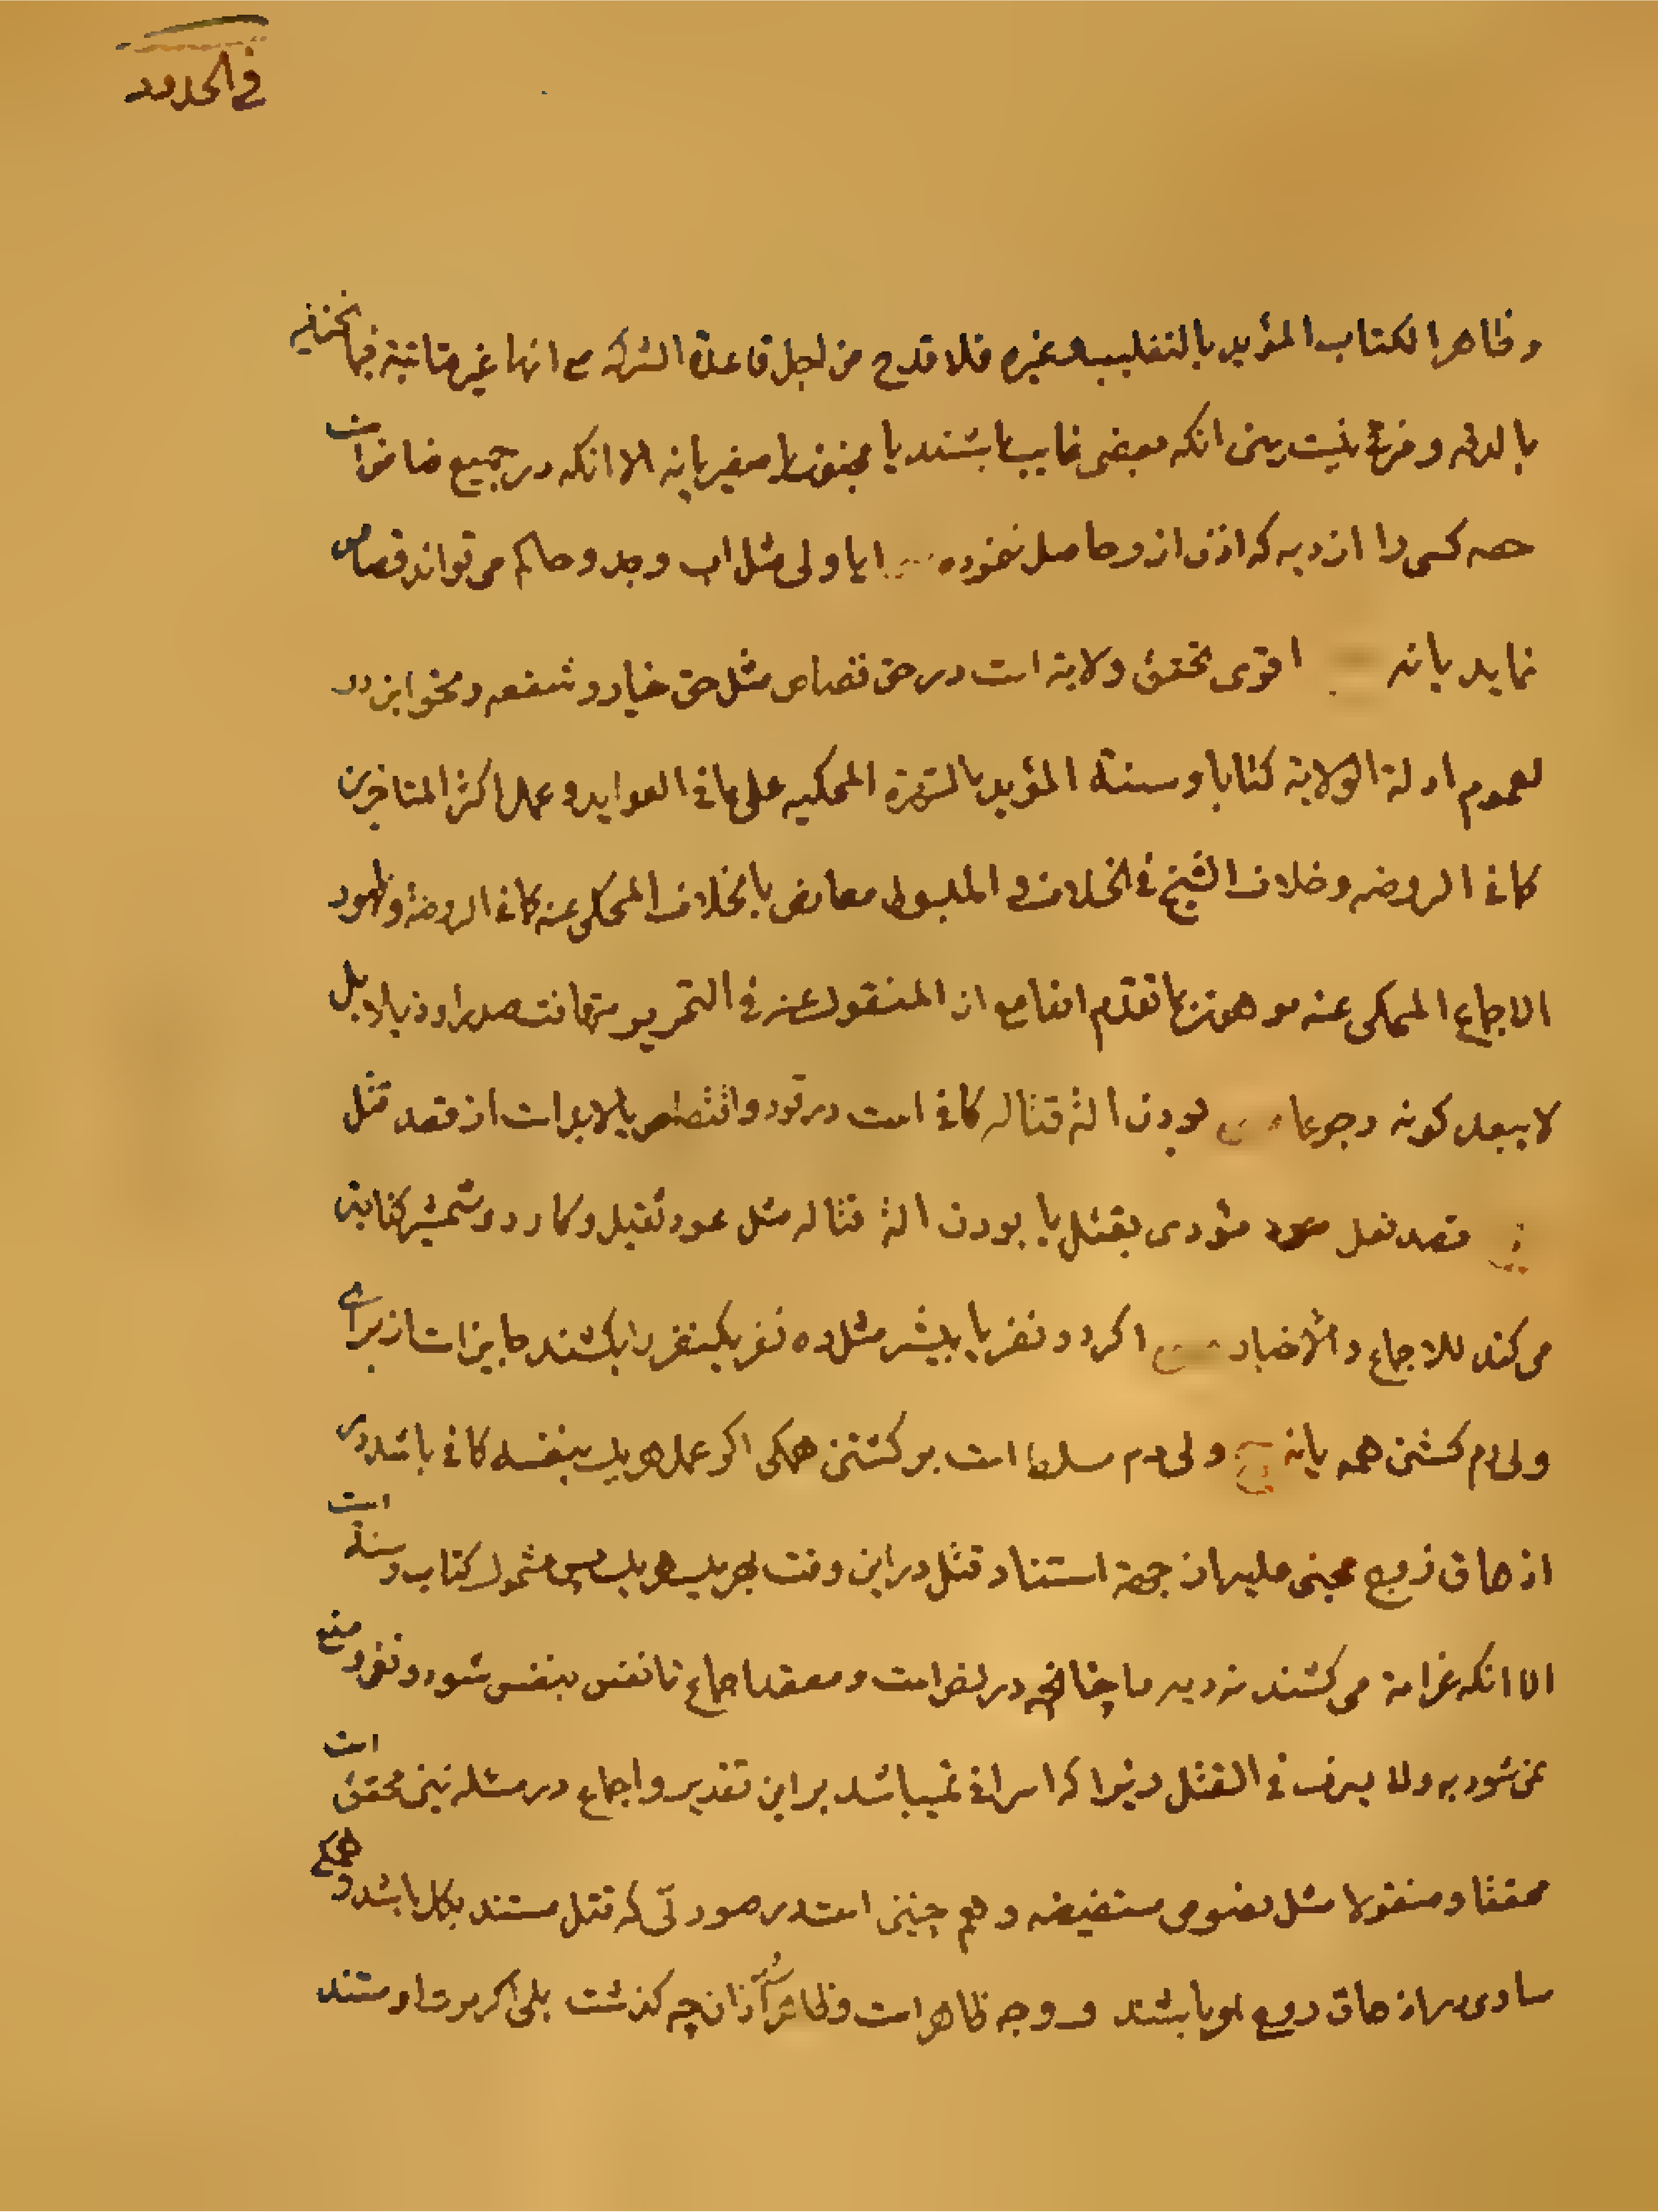 في الحدود
وظاهر الكتاب المؤيد بالتغليب وغيره فلا قدح من اجل قاعدة الشركه مع انها غير متاتية فيما نحن فيه
بالمره و فرقى نيست بين انكه بعضى غايب باشند يا مجنون يا صغير يا نه الا انكه در جميع ضامن است
حصه كسى را از ديه كه اذن از و حاصل ننموده ايا ولى مثل اب و جد و حاكم مى تواند قصاص
نمايد يا نه اقوى تحقق ولاية است در حق قصاص مثل حق خيار و شفعه و نحو اين دو
لعموم ادلة الولاية كتابا و سنة المؤيد بالشهرة المحكيه على ما في الفوايد و عمل اكثر المتاخرين
كما في الروضه و خلاف الشيخ في الخلاف و المبسوط معارض بالخلاف المحكى عنه كما في الروضة و ظهور
الاجماع المحكى عنه موهون بما تقدم انفا مع ان المنقول عنه في التحرير متهافت صدرا و ذيلا بل
لا يبعد كونه رجوعا بودن الة قتاله كافي است در قود و اقتصاص يا لابد است از قصد قتل
قصد فعل مؤدى بقتل يا بودن الة قتاله مثل عود ثقيل و كارد و شمشير كفايت
مى كند للاجماع و الأخبار اكر دو نفر يا بيشتر مثل ده نفر يكنفر را بكشند جايز است از براى
ولى دم كشتن همه يا نه ولى دم مسلط است بر كشتن همكى اكر عمل هر يك بنفسه كافى باشد در
ازهاق روح مجنى عليه از جهة استناد قتل در اين وقت بهر يك هر يك پس مشمول كتاب و سنة است
الا انكه غرامة مى كشند نه ديه ما چنانچه در نص است و معقد اجماع تا نفس بنفس شود و نفرد منع
نمى شود به ولا يسرف في القتل زيرا كه اسرافى نميباشد بر اين تقدير و اجماع در مسئله نيز محقق است
محققا و منقولا مثل نصوص مستفيضه و هم چنين است در صورتى كه قتل مستند بكل باشد و همكى
مساوى در ازهاق روح او باشند و وجه ظاهر است و ظاهرا از آن چه كذشت بلى اكر موت او مستند